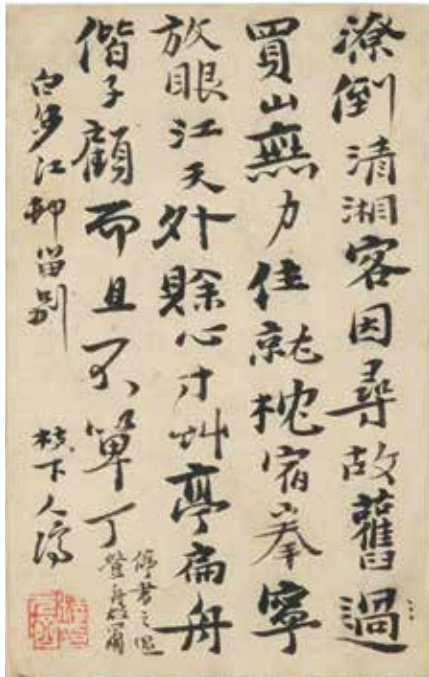 潦倒清湘客因尋故舊過
買山無力住就枕宿拳寧
放眼江天外賒心寸艸亭扁舟
偕子顧而且不單丁
停書之過
白沙江邨留別 枝下人濟